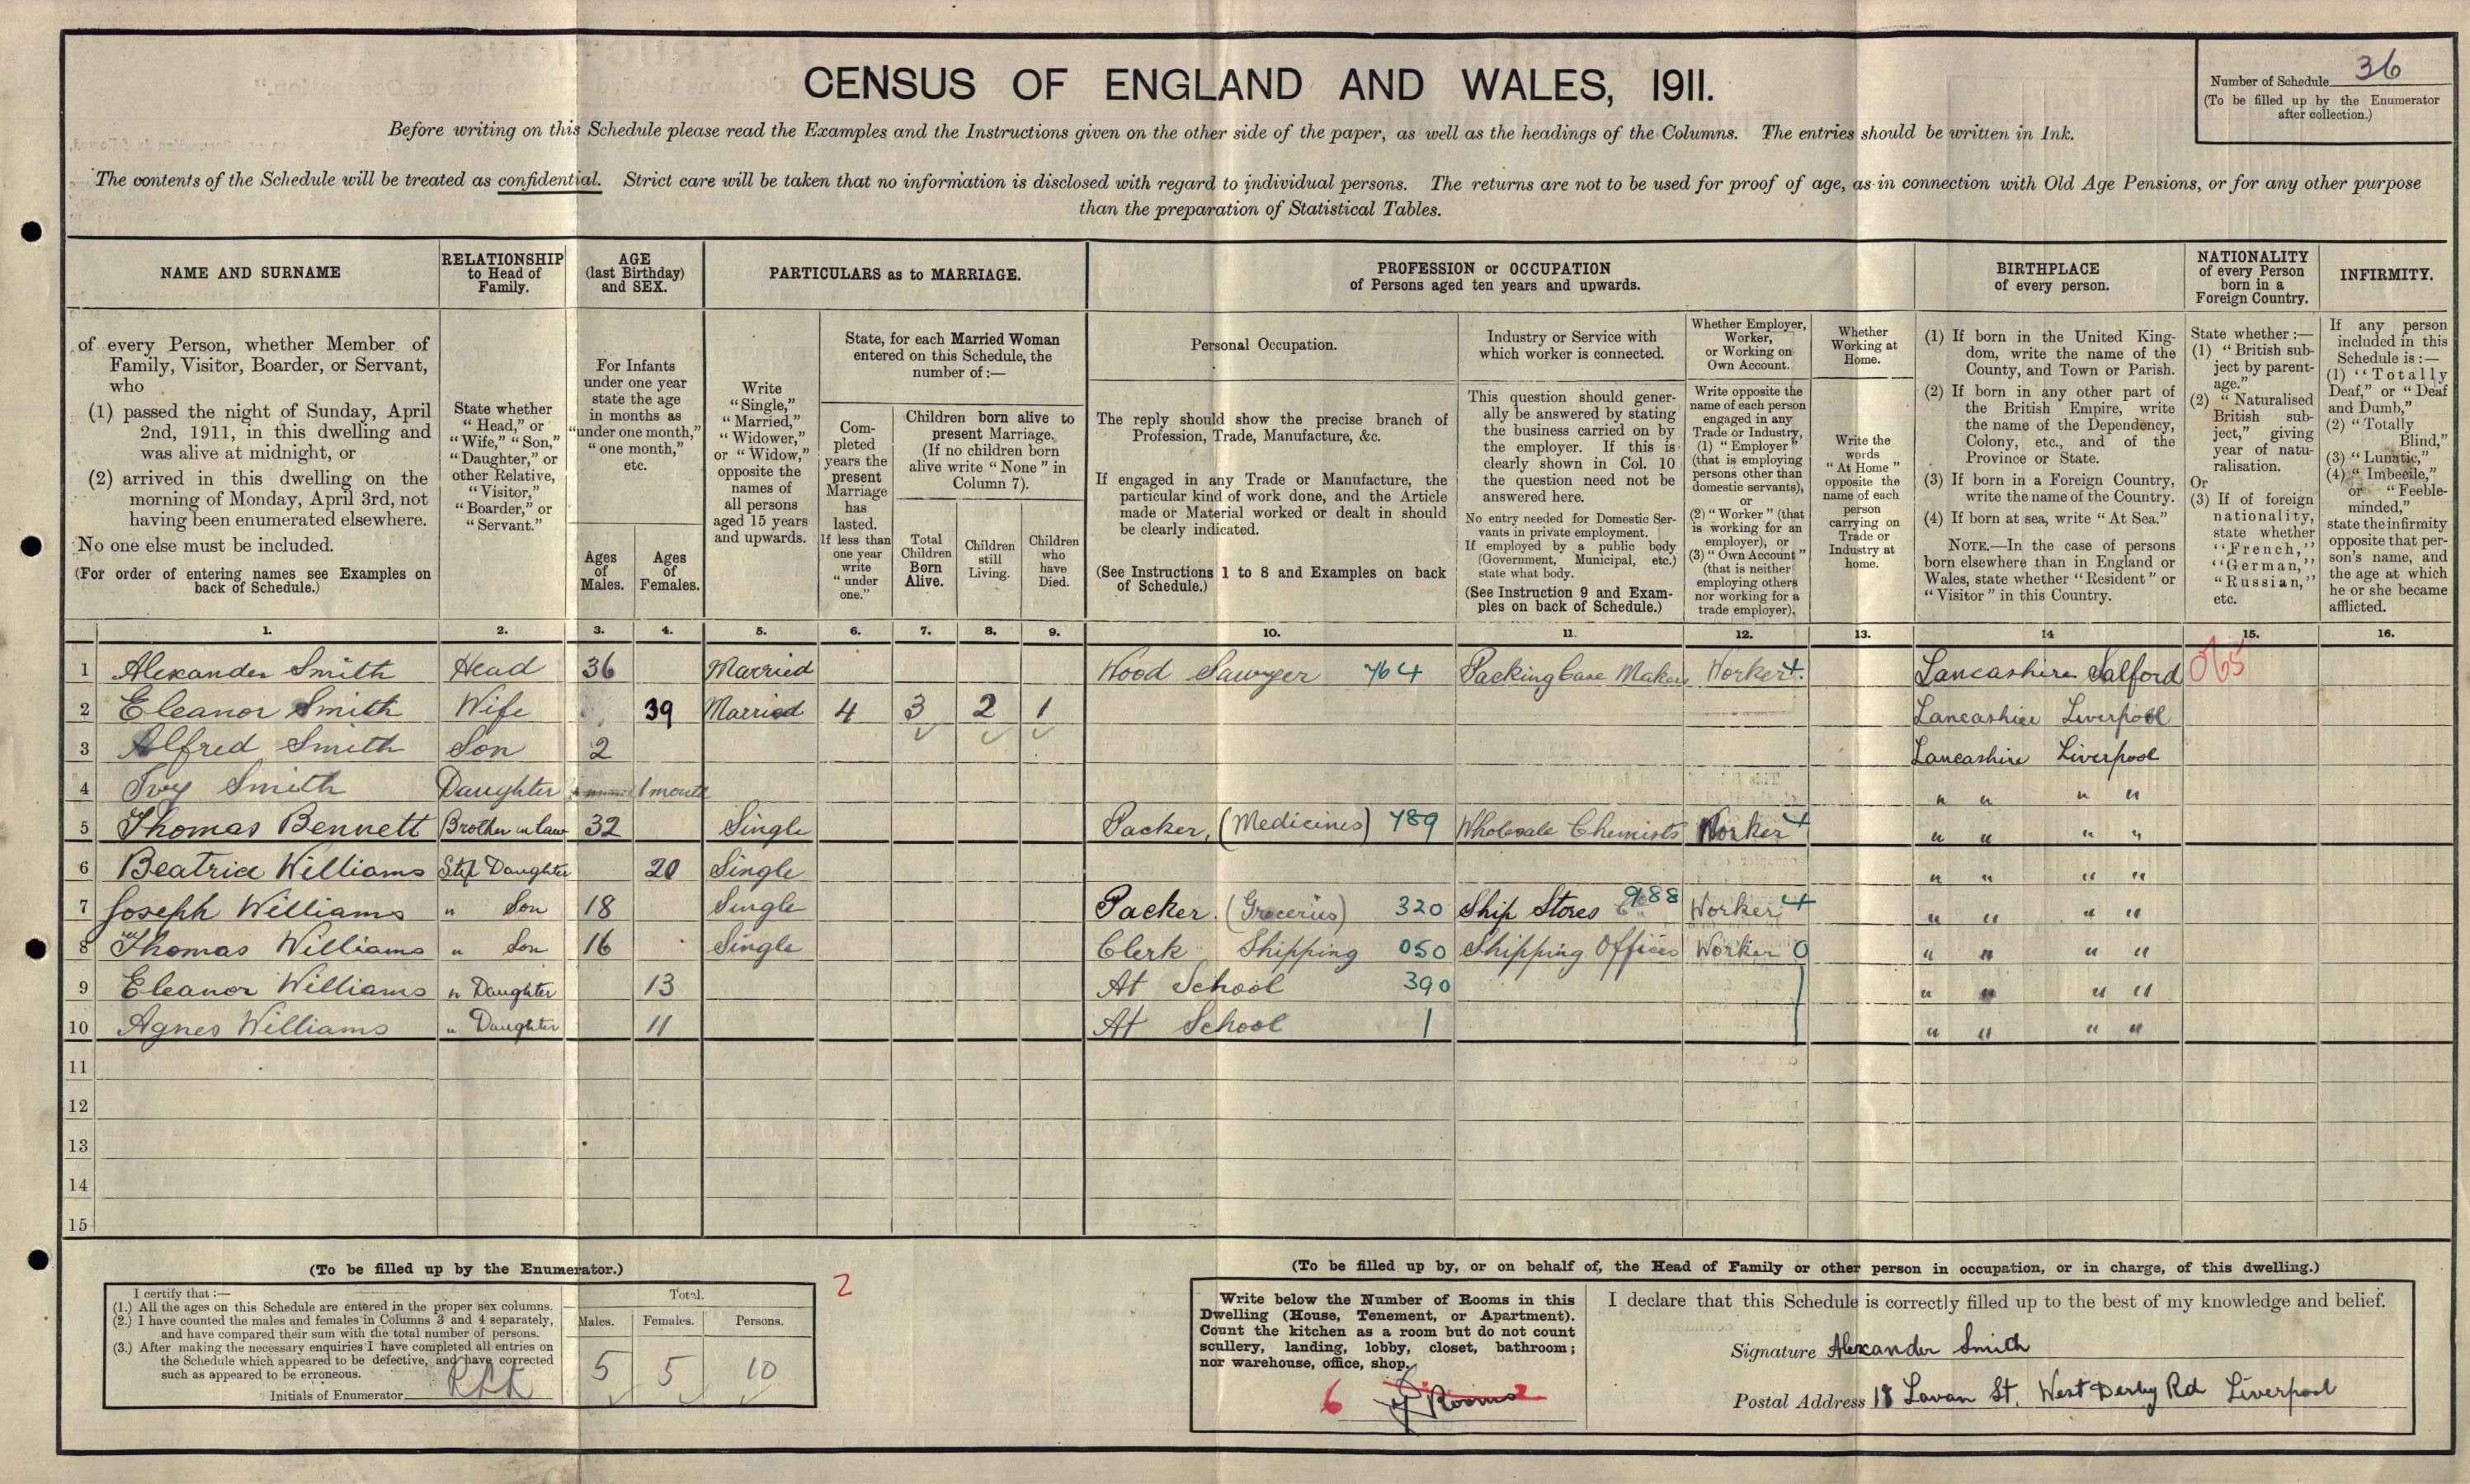 CENSUS OF ENGLAND AND WALES, 1911.
Number of Schedule 36
(To be filled up by the Enumerator
after collection.)
Before writing on this Schedule please read the Examples and the Instructions given on the other side of the paper, as well as the headings of the Columns. The entries should be written in Ink.
The contents of the Schedule will be treated as confidential. Strict care will be taken that no information is disclosed with regard to individual persons. The returns are not to be used for proof of age, as in connection with Old Age Pensions, or for any other purpose
than the preparation of Statistical Tables.
NAME AND SURNAME
RELATIONSHIP
to Head of
Family.
AGE
(last Birthday)
and SEX.
PARTICULARS as to MARRIAGE.
PROFESSION or OCCUPATION
of Persons aged ten years and upwards.
BIRTHPLACE
of every person.
NATIONALITY
of every Person
born in a
Foreign Country.
INFIRMITY.
of every Person, whether Member of
Family, Visitor, Boarder, or Servant,
who
(1) passed the night of Sunday, April
2nd, 1911, in this dwelling and
was alive at midnight, or
(2) arrived in this dwelling on the
morning of Monday, April 3rd, not
having been enumerated elsewhere.
No one else must be included.
(For order of entering names see Examples on
back of Schedule.)
State whether
"Head," or
"Wife," "Son,"
"Daughter," or
other Relative,
"Visitor,"
"Boarder," or
"Servant."
For Infants
under one year
state the age
in months as
"under one month,"
"one month,"
etc.
Ages
of
Males.
Ages
of
Females.
Write
"Single,"
"Married,"
"Widower,"
or "Widow,"
opposite the
names of
all persons
aged 15 years
and upwards.
State, for each Married Woman
entered on this Schedule, the
number of :—
Com-
pleted
years the
present
Marriage
has
lasted.
If less than
one year
write
"under
one."
Children born alive to
present Marriage.
(If no children born
alive write "None" in
Column 7).
Total
Children
Born
Alive.
Children
still
Living.
Children
who
have
Died.
Personal Occupation.
The reply should show the precise branch of
Profession, Trade, Manufacture, &c.
If engaged in any Trade or Manufacture, the
particular kind of work done, and the Article
made or Material worked or dealt in should
be clearly indicated.
(See Instructions 1 to 8 and Examples on back
of Schedule.)
Industry or Service with
which worker is connected.
This question should gener-
ally be answered by stating
the business carried on by
the employer. If this is
clearly shown in Col. 10
the question need not be
answered here.
No entry needed for Domestic Ser-
vants in private employment.
If employed by a public body
(Government, Municipal, etc.)
state what body.
(See Instruction 9 and Exam-
ples on back of Schedule.)
Whether Employer,
Worker,
or Working on
Own Account.
Write opposite the
name of each person
engaged in any
Trade or Industry,
(1) "Employer"
(that is employing
persons other than
domestic servants),
or
(2) "Worker" (that
is working for an
employer), or
(3) "Own Account"
(that is neither
employing others
nor working for a
trade employer).
Whether
Working at
Home.
Write the
words
"At Home"
opposite the
name of each
person
carrying on
Trade or
Industry at
home.
(1) If born in the United King-
dom, write the name of the
County, and Town or Parish.
(2) If born in any other part of
the British Empire, write
the name of the Dependency,
Colony, etc., and of the
Province or State.
(3) If born in a Foreign Country,
write the name of the Country.
(4) If born at sea, write "At Sea."
NOTE.—In the case of persons
born elsewhere than in England or
Wales, state whether "Resident" or
"Visitor" in this Country.
State whether :—
(1) "British sub-
ject by parent-
age."
(2) "Naturalised
British sub-
ject," giving
year of natu-
ralisation.
Or
(3) If of foreign
nationality,
state whether
"French,"
"German,"
"Russian,"
etc.
If any person
included in this
Schedule is :—
(1) "Totally
Deaf," or "Deaf
and Dumb,"
(2) "Totally
Blind,"
(3) "Lunatic,"
(4) "Imbecile,"
or "Feeble-
minded,"
state the infirmity
opposite that per-
son's name, and
the age at which
he or she became
afflicted.
1. 2. 3. 4. 5. 6. 7. 8. 9. 10. 11. 12. 13. 14 15. 16.
1 Alexander Smith Head 36 Married Wood Sawyer 764 Packing Case Maker Worker 4 Lancashire Salford 065
2 Eleanor Smith Wife 39 Married 4 3 2 1 Lancashire Liverpool
3 Alfred Smith Son 2 Lancashire Liverpool
4 Ivy Smith Daughter 1 month " " " "
5 Thomas Bennett Brother in law 32 Single Packer, (Medicines) 789 Wholesale Chemists Worker 4 " " " "
6 Beatrice Williams Step Daughter 20 Single " " " "
7 Joseph Williams " Son 18 Single Packer (Groceries) 320 Ship Stores 988 Worker 4 " " " "
8 Thomas Williams " Son 16 Single Clerk Shipping 050 Shipping Offices Worker 0 " " " "
9 Eleanor Williams " Daughter 13 At School 390 " " " "
10 Agnes Williams " Daughter 11 At School " " " "
11
12
13
14
15
(To be filled up by the Enumerator.)
I certify that :—
(1.) All the ages on this Schedule are entered in the proper sex columns.
(2.) I have counted the males and females in Columns 3 and 4 separately,
and have compared their sum with the total number of persons.
(3.) After making the necessary enquiries I have completed all entries on
the Schedule which appeared to be defective, and have corrected
such as appeared to be erroneous.
Initials of Enumerator
Total.
Males. Females. Persons.
5 5 10
2
(To be filled up by, or on behalf of, the Head of Family or other person in occupation, or in charge, of this dwelling.)
Write below the Number of Rooms in this
Dwelling (House, Tenement, or Apartment).
Count the kitchen as a room but do not count
scullery, landing, lobby, closet, bathroom;
nor warehouse, office, shop.
6 Rooms
I declare that this Schedule is correctly filled up to the best of my knowledge and belief.
Signature Alexander Smith
Postal Address 18 Lavan St. West Derby Rd Liverpool